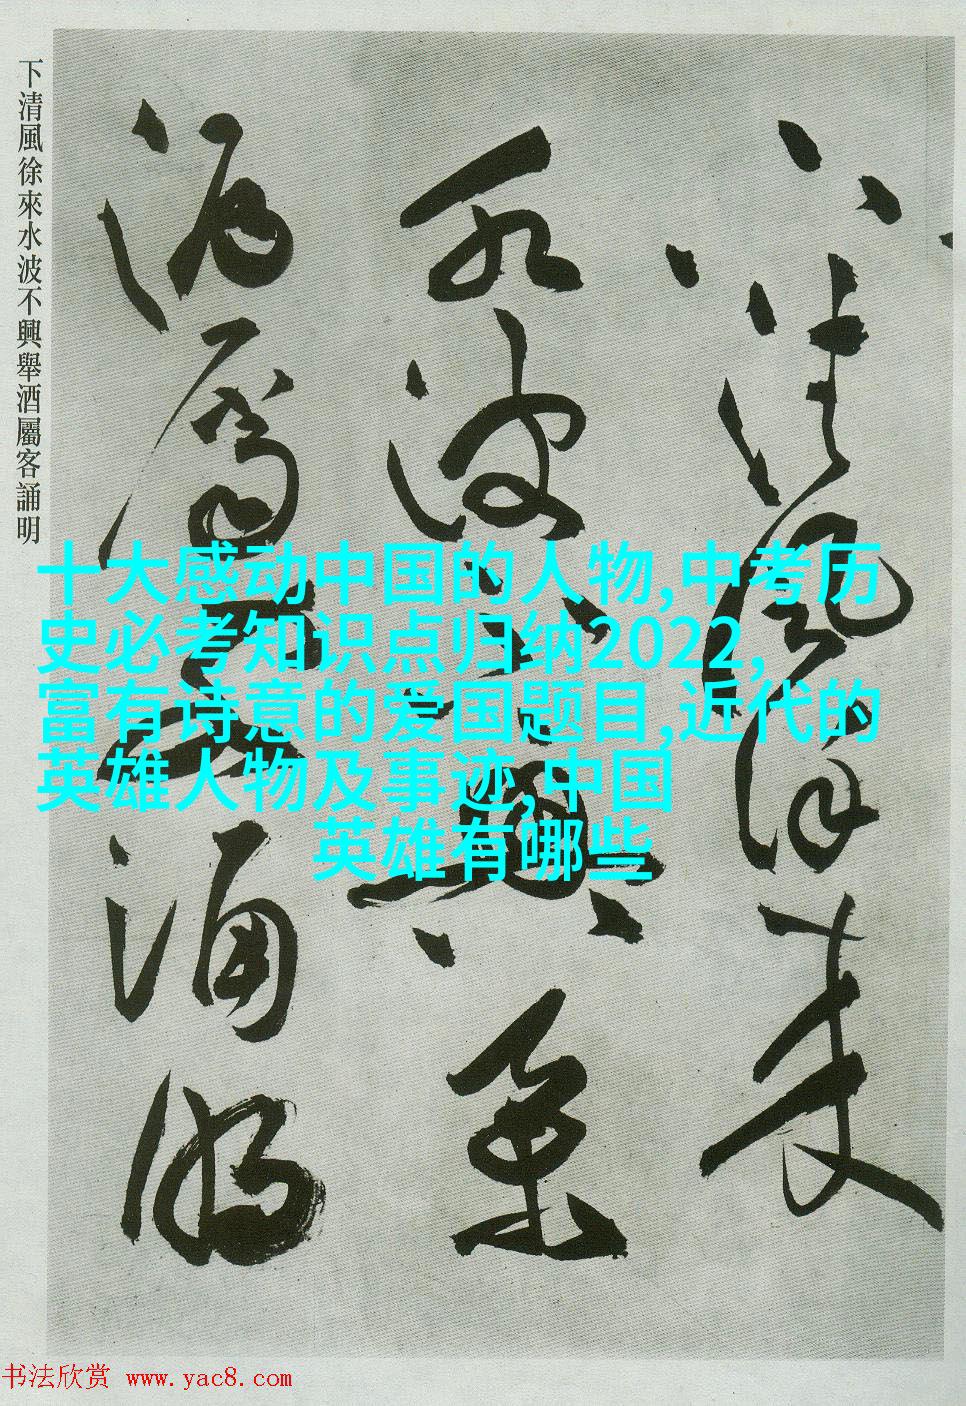 下清風徐來水波不興舉酒屬客誦明
下清風徐來
水波不興舉
酒屬客誦明
十大感动中国的人物,中考历
史必考知识点归纳2022,
富有诗意的爱国题目,近代的
英雄人物及事迹,中国
英雄有哪些
书法欣赏 www.yac8.com